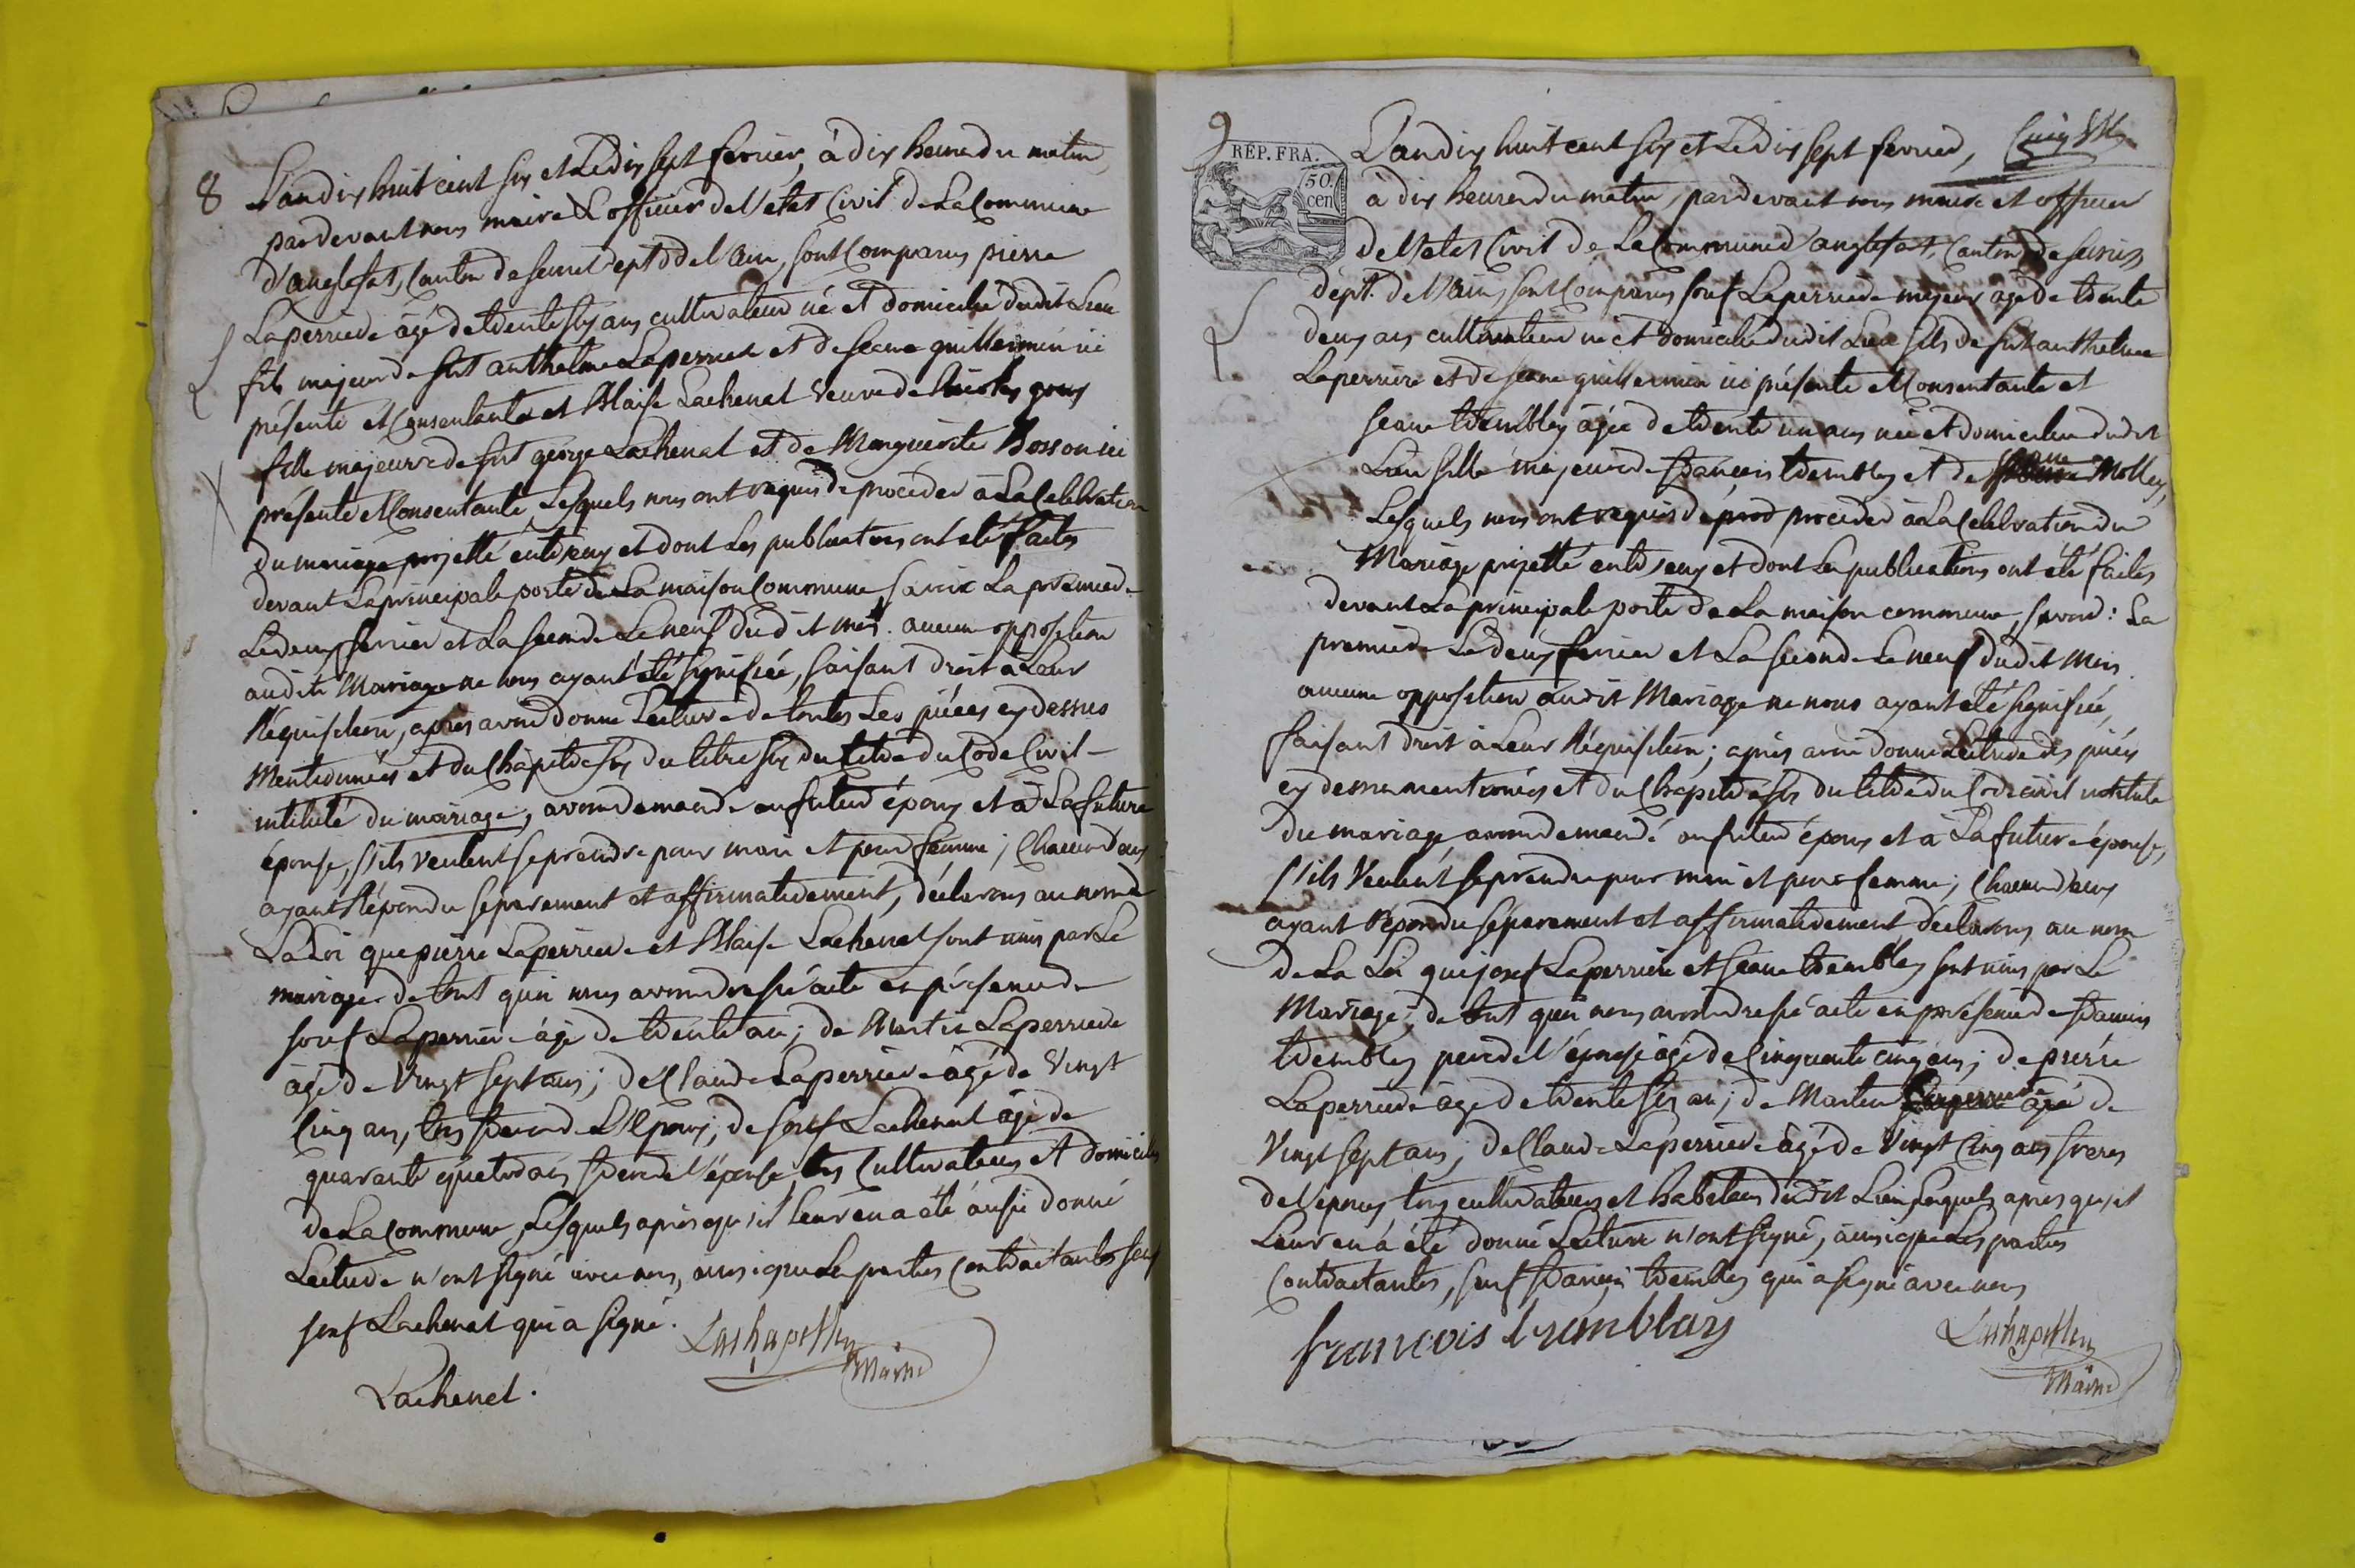 8
L'an dix huit cent six et Le dix sept fevrier, à dix heures du matin
pardevant nous maire & officier de l'etat Civil de La Commune
d'anglefort, Canton de seissel dept. de l'Ain, sont Comparus pierre
Laperriere âgé de trente six ans cultivateur né et domicilié dudit Lieu
fils majeur de fut anthelme Laperriere et de jeane guillermin ici
présente et Consentante et Blaise Lachenal veuve de Nicolas gous
fille majeure de fut george Lachenal et de Marguerite Bosson ici
présente et Consentante, Lesquels nous ont requis de proceder à La Celebration
du mariage projetté entr'eux et dont Les publications ont été faites
devant La principale porte de La maison Commune, savoir La premiere
Le deux fevrier et La seconde Le neuf dudit mois. aucune opposition
audit Mariage ne nous ayant été signifiée, faisant droit à Leur
Réquisition, après avoir donné Lecture de toutes Les pièces cy dessus
Mentionnées et du Chapitre six du titre six du titre du Code Civil
intitulé du mariage, avons demandé au futur époux et à La future
épouse, s'ils veulent se prendre pour mari et pour femme; Chacun d'eux
ayant Répondu séparement et affirmativement, déclarons au nom de
La Loi que pierre Laperriere et Blaise Lachenal sont unis par Le
mariage de tout quoi nous avons dressé acte en présence de
josef Laperriere âgé de trente ans; de Martin Laperriere
âgé de vingt sept ans; de Claude Laperriere âgé de vingt
Cinq ans, tous freres de L'Epoux; de josef Lachenal âgé de
quarante quatre ans frere de l'épouse tous Cultivateurs et domiciliés
de La Commune, Lesquels après qu'il leur en a été aussi donné
Lecture n'ont signé avec nous, ainsi que Les parties Contractantes sauf
josef Lachenal qui a signé.
Lachapelle
Maire
Lachenel.
9
REP. FRA.
50.
cen
L'an dix huit cent six et Le dix sept fevrier,
à dix heures du matin, pardevant nous maire et officier
de l'etat Civil de La Commune d'anglefort, Canton de seissel
dépt. de l'Ain, sont Comparus josef Laperriere majeur âgé de trente
deux ans cultivateur né et domicilié dudit Lieu fils de fut anthelme
Laperriere et de jeane guillermin ici présente et Consentante et
jeane trembley âgée de trente un ans née et domiciliée dudit
Lieu fille majeure de francois trembley et de Mollex,
Lesquels nous ont requis de prod proceder à La Celebration du
Mariage projetté entr'eux et dont Les publications ont été faites
devant La principale porte de La maison commune, savoir: La
premiere Le deux fevrier et La seconde Le neuf dudit Mois.
aucune opposition audit Mariage ne nous ayant été signifiée,
faisant droit à Leur Réquisition; après avoir donné Lecture des pièces
cy dessus mentionées et du Chapitre six du titre du Code civil intitulé
du mariage, avons demandé au futur époux et à La future épouse,
s'ils veulent se prendre pour mari et pour femme; Chacun d'eux
ayant répondu séparement et affirmativement déclarons au nom
de La Loi que josef Laperriere et jeane trembley sont unis par Le
Mariage; de tout quoi nous avons dressé acte en présence de francois
trembley pere de l'épouse âgé de Cinquante cinq ans; de pierre
Laperriere âgé de trente six ans; de Martin Laperriere âgé de
vingt sept ans; de Claude Laperriere âgé de vingt Cinq ans freres
de l'epoux tous cultivateurs et habitans dudit Lieu Lesquels après qu'il
Leur en a été donné Lecture n'ont signé, ainsi que Les parties
Contractantes, sauf francois trembley qui a signé avec nous
francois tremblay
Lachapelle
Maire